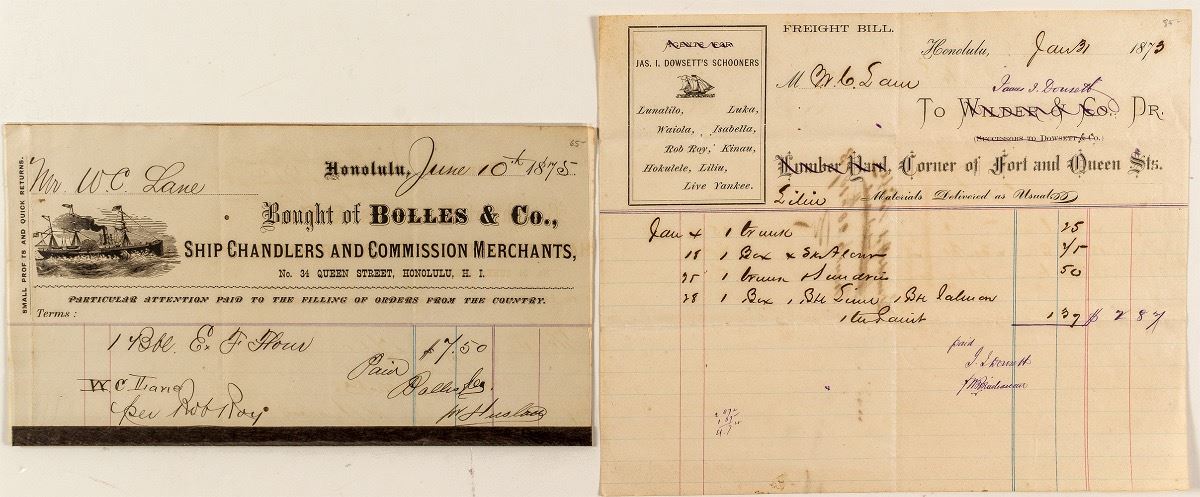 65-
SMALL PROFITS AND QUICK RETURNS.
Honolulu, June 10th 1875.
Mr. W. C. Lane
Bought of BOLLES & Co.,
SHIP CHANDLERS AND COMMISSION MERCHANTS,
No. 34 QUEEN STREET, HONOLULU, H. I.
PARTICULAR ATTENTION PAID TO THE FILLING OF ORDERS FROM THE COUNTRY.
Terms :
1 Bbl. Ex F Flour $7.50
Paid
W C Lane Bolles & Co.
per Rob Roy.
95-
FREIGHT BILL.
Honolulu, Jan 31 1873
JAS. I. DOWSETT'S SCHOONERS
Lunalilo, Luka,
Waiola, Isabella,
Rob Roy, Kinau,
Hokulele, Liliu,
Live Yankee.
M W. C. Lane
James I. Dowsett
To Wilder & Co., Dr.
(Successors to Dowsett & Co.)
Lumber Yard, Corner of Fort and Queen Sts.
Liliu Materials Delivered as Usual
Jan 4 1 trunk 25
18 1 Box 75
25 1 Sundries 50
28 1 Box 1 Bbl Lime 1 Bbl Salmon
137 $ 2 87
paid
J. I. Dowsett